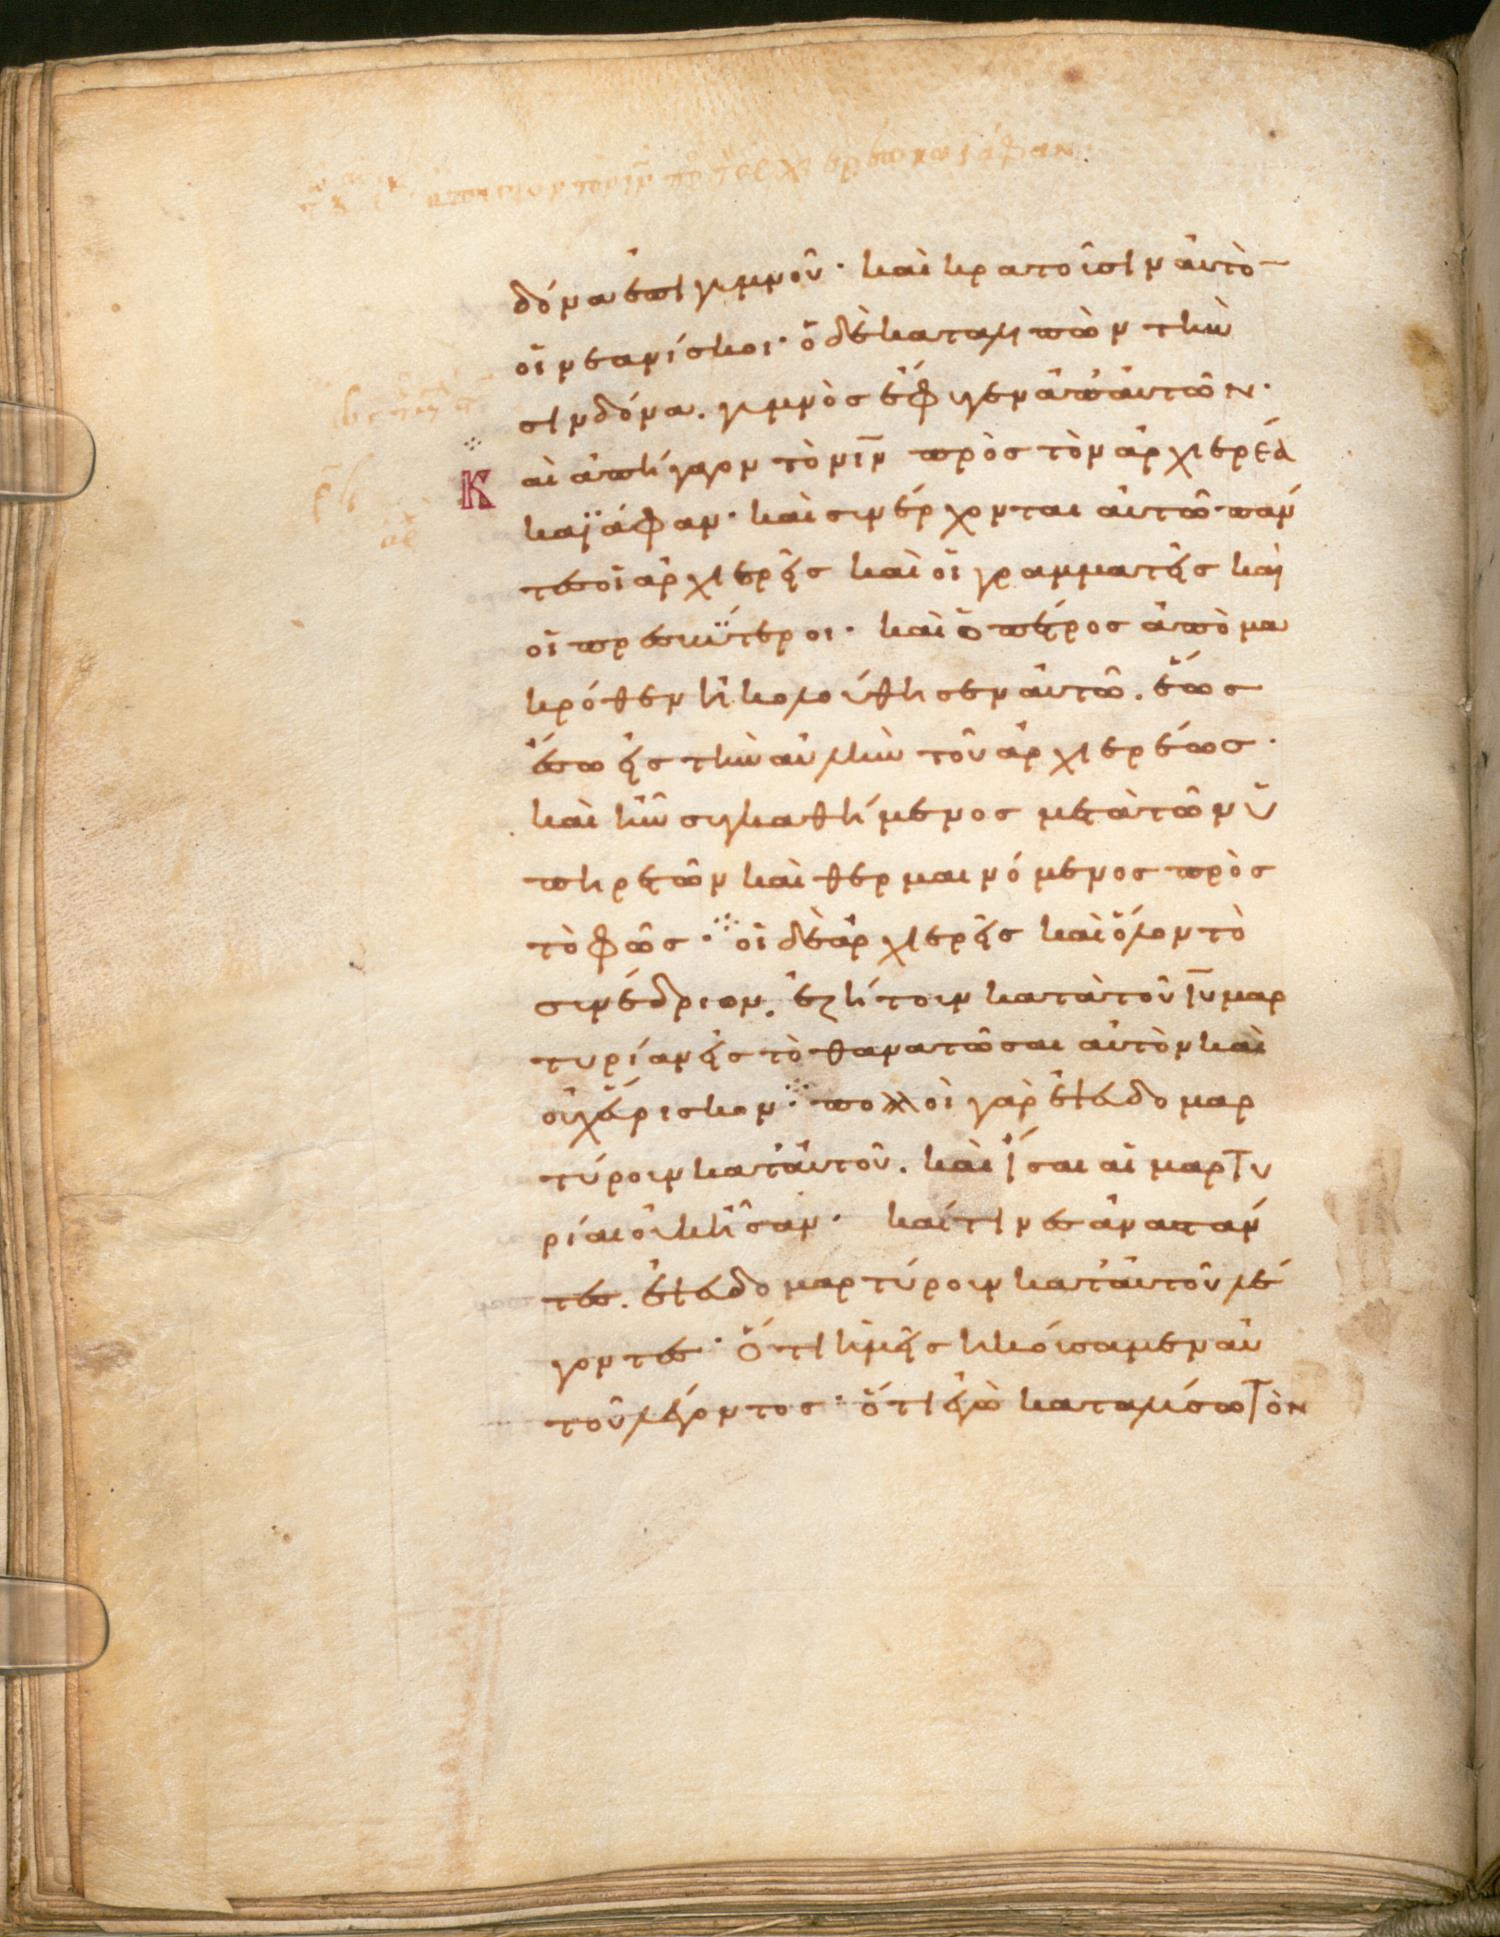 δόνα ἐπὶ γυμνοῦ· καὶ κρατοῦσιν αὐτὸ
οἱ νεανίσκοι· ὁ δὲ καταλιπὼν τὴν
σινδόνα. γυμνὸς ἔφυγεν ἀπ' αὐτῶν·
Καὶ ἀπήγαγον τὸν ῑν̄ πρὸς τὸν ἀρχιερέα
καϊάφαν· καὶ συνέρχονται αὐτῶ πάν
τες οἱ ἀρχιερεῖς καὶ οἱ γραμματεῖς καὶ
οἱ πρεσβύτεροι· καὶ ὁ πέτρος ἀπὸ μα
κρόθεν ἠκολούθησεν αὐτῶ. ἕως
ἔσω εἰς τὴν αὐλὴν τοῦ ἀρχιερέως·
καὶ ἦν συγκαθήμενος μετὰ τῶν ὑ
πηρετῶν καὶ θερμαινόμενος πρὸς
τὸ φῶς· οἱ δὲ ἀρχιερεῖς καὶ ὅλον τὸ
συνέδριον. ἐζήτουν κατὰ τοῦ ῑῡ μαρ
τυρίαν εἰς τὸ θανατῶσαι αὐτὸν καὶ
οὐχ εὕρισκον· πολλοὶ γὰρ ἐψευδομαρ
τύρουν κατ' αὐτοῦ. καὶ ἴσαι αἱ μαρτυ
ρίαι οὐκ ἦσαν· καί τινες ἀναστάν
τες. ἐψευδομαρτύρουν κατ' αὐτοῦ λέ
γοντες· ὅτι ἡμεῖς ἠκούσαμεν αὐ
τοῦ λέγοντος· ὅτι ἐγὼ καταλύσω τὸν